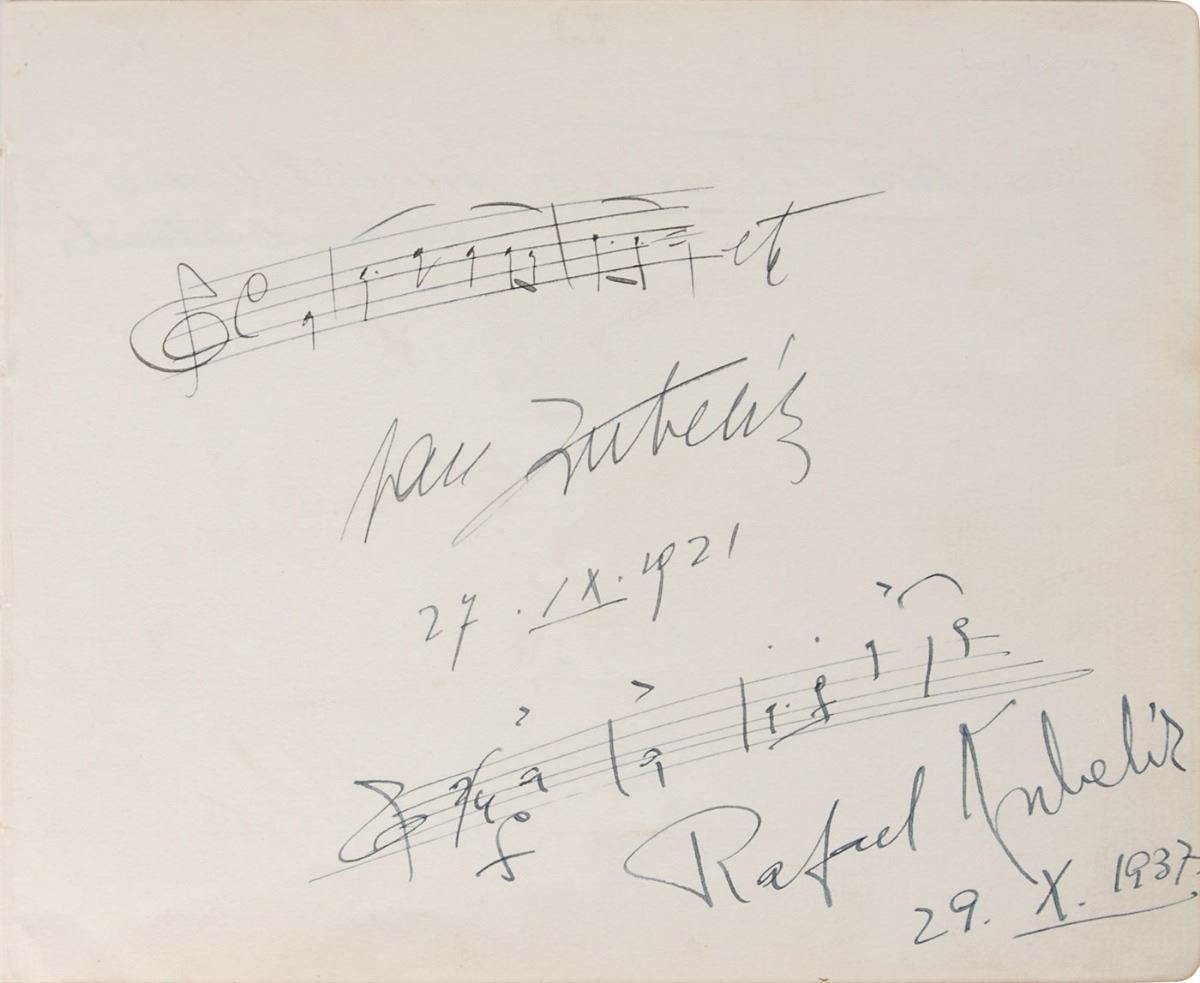 etc
Jan Kubelík
27. IX. 1921
f
Rafael Kubelík
29. X. 1937.